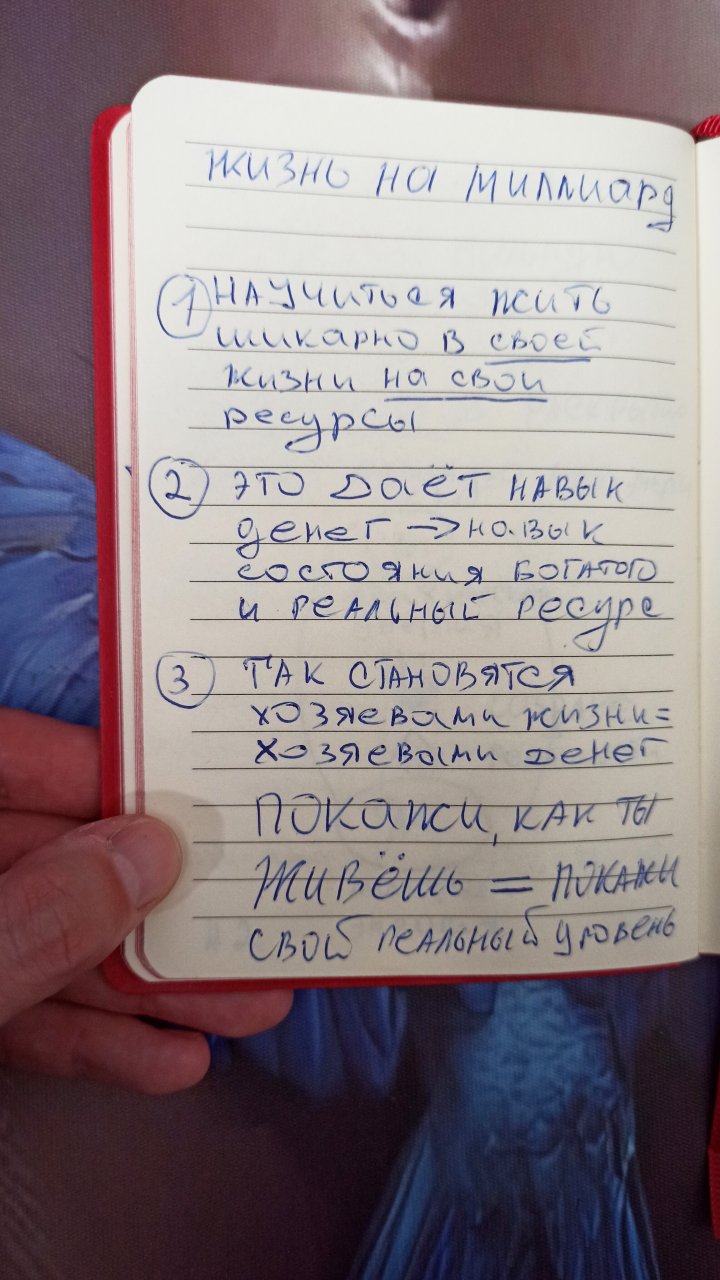 жизнь на миллиард
1 Научиться жить
шикарно в своей
жизни на свои
ресурсы
2 Это даёт навык
денег → навык
состояния богатого
и реальный ресурс
3 Так становятся
хозяевами жизни =
хозяевами денег
Покажи, как ты
живёшь = покажи
свой реальный уровень